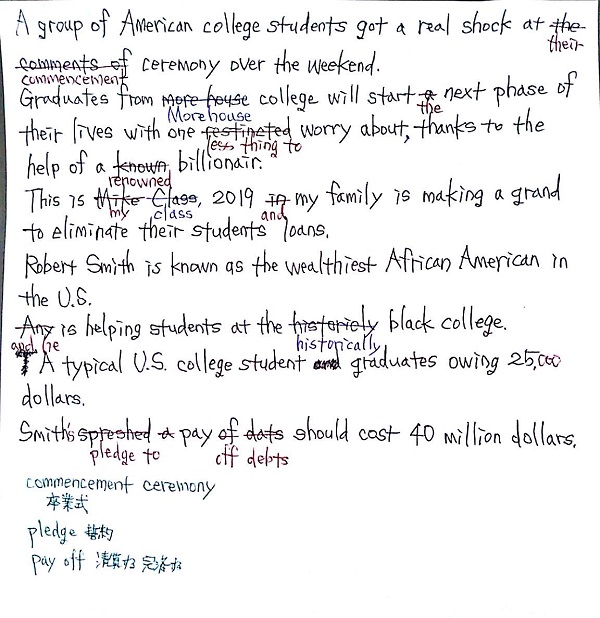 A group of American college students got a real shock at the
their
comments of ceremony over the weekend.
commencement
Graduates from more house college will start a next phase of
Morehouse the
their lives with one festincted worry about, thanks to the
less thing to
help of a known billionair.
renowned
This is Mike Class, 2019 in my family is making a grand
my class and
to eliminate their students loans.
Robert Smith is known as the wealthiest African American in
the U.S.
Any is helping students at the historiely black college.
and he historically
A typical U.S. college student and graduates owing 25,000
dollars.
Smith's spreshed a pay of dats should cost 40 million dollars.
pledge to off debts
commencement ceremony
卒業式
pledge 誓約
pay off 清算する 完済する